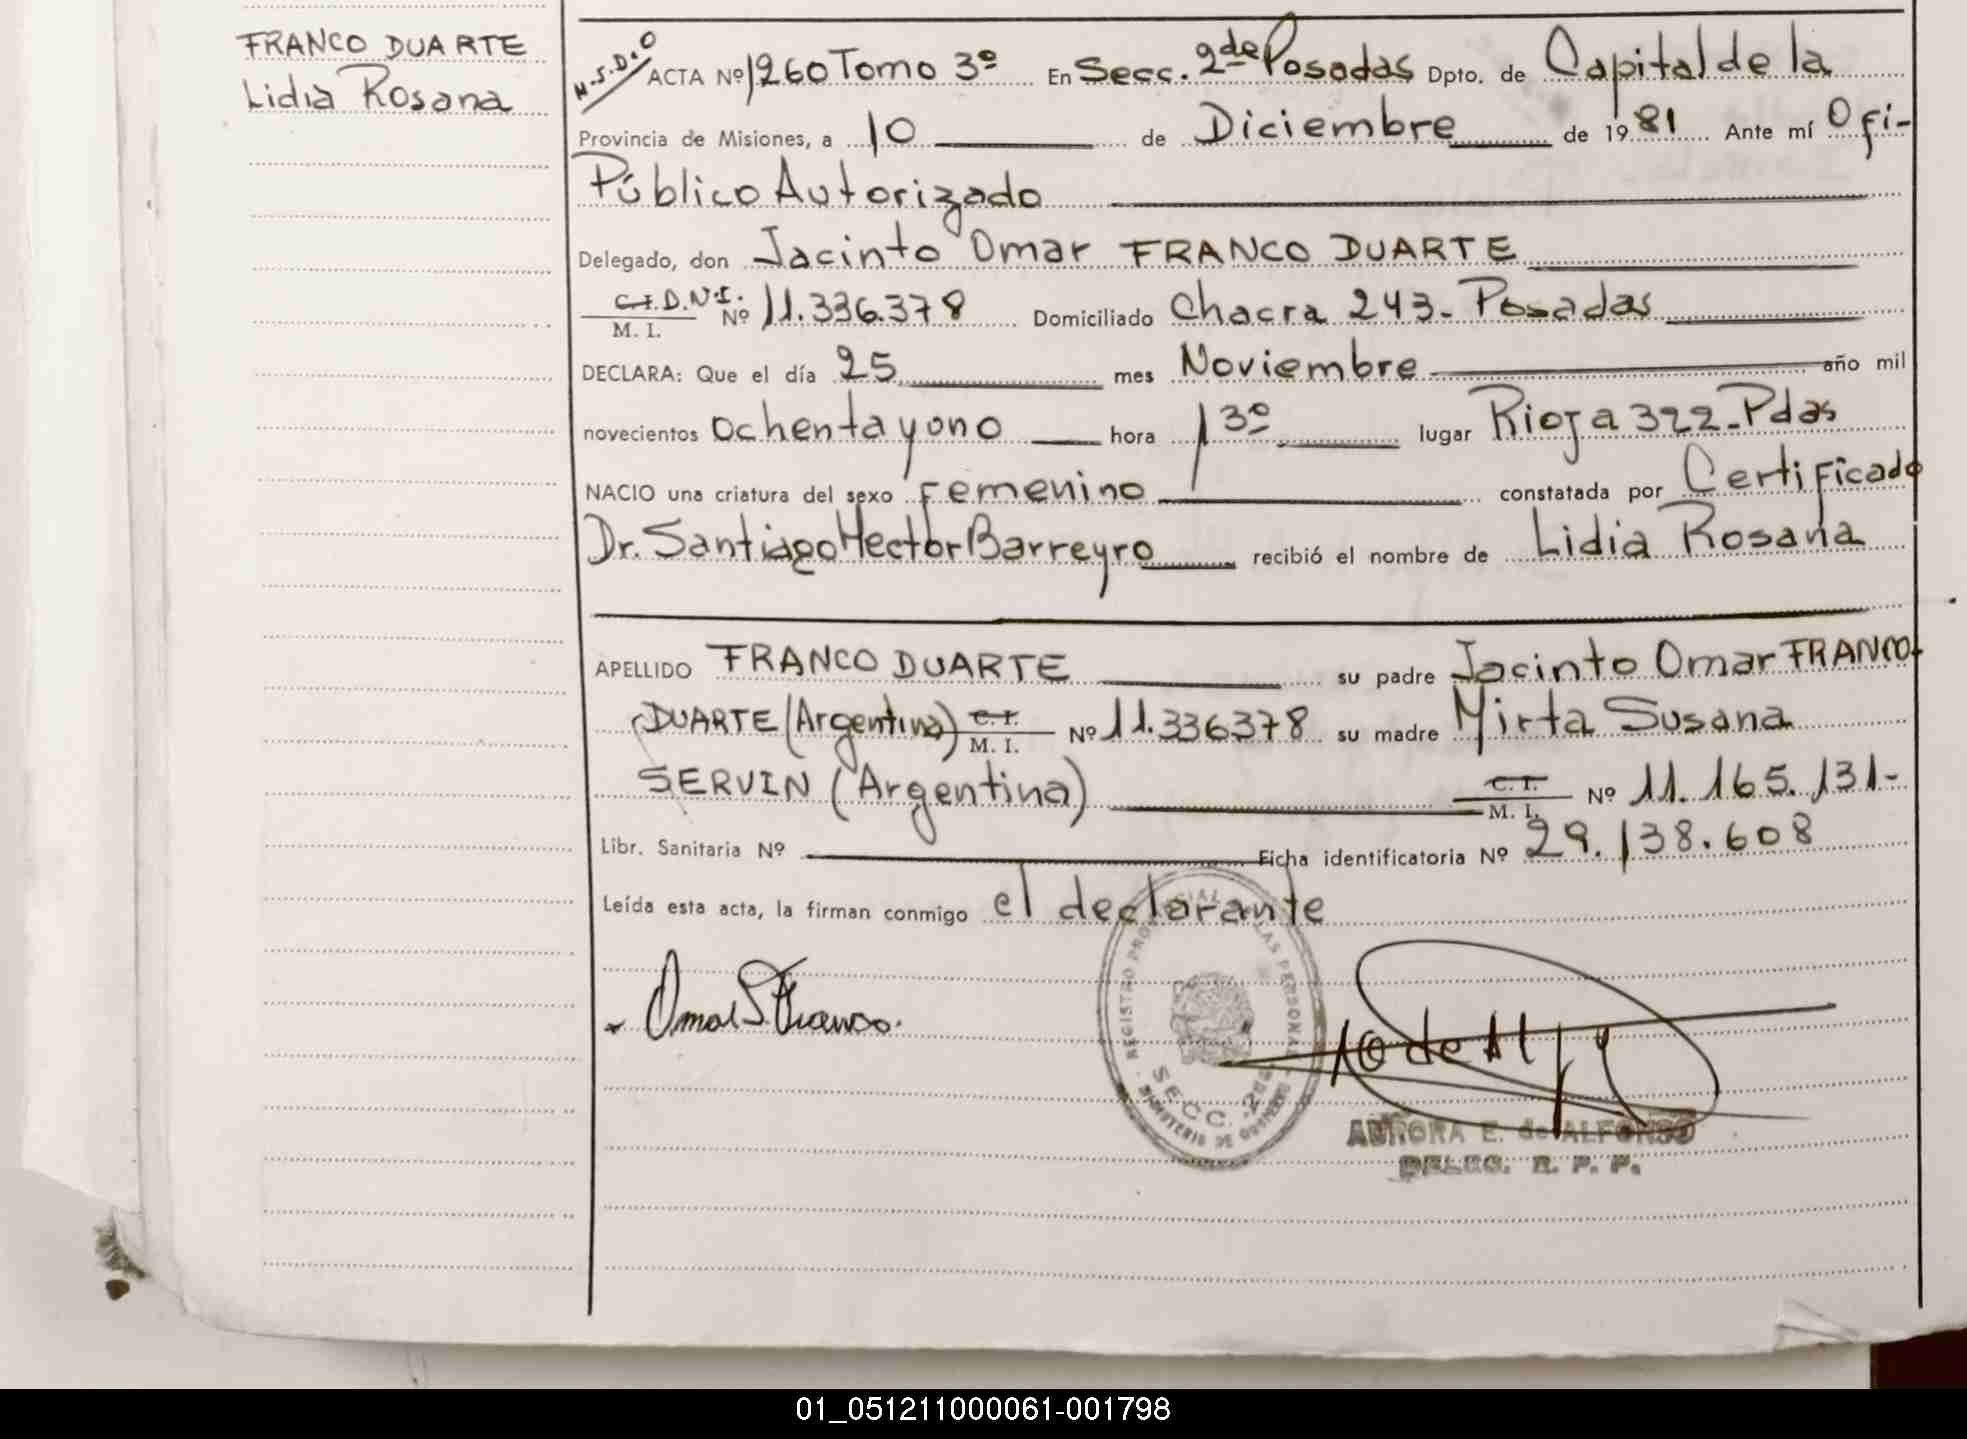 FRANCO DUARTE
Lidia Rosana
M.S.D.O
ACTA Nº 1260 Tomo 3º En Secc. 2da Posadas Dpto. de Capital de la
Provincia de Misiones, a 10 de Diciembre de 1981 Ante mí Ofi-
Público Autorizado
Delegado, don Jacinto Omar FRANCO DUARTE
C.I. D.N.I. M. I. Nº 11.336.378 Domiciliado Chacra 243 - Posadas
DECLARA: Que el día 25 mes Noviembre año mil
novecientos ochenta y uno hora 1 30 lugar Rioja 322 - Pdas
NACIO una criatura del sexo Femenino constatada por Certificado
Dr. Santiago Hector Barreyro recibió el nombre de Lidia Rosana
APELLIDO FRANCO DUARTE su padre Jacinto Omar FRANCO
DUARTE (Argentina) C. I. M. I. Nº 11.336378 su madre Mirta Susana
SERVIN (Argentina) C. I. M. I. Nº 11.165.131-
Libr. Sanitaria Nº Ficha identificatoria Nº 29.138.608
Leída esta acta, la firman conmigo el declarante
REGISTRO PROVINCIAL DE LAS PERSONAS
SECC. 2da
MINISTERIO DE GOBIERNO
AURORA E. de ALFONSO
DELEG. R. P. P.
01_051211000061-001798